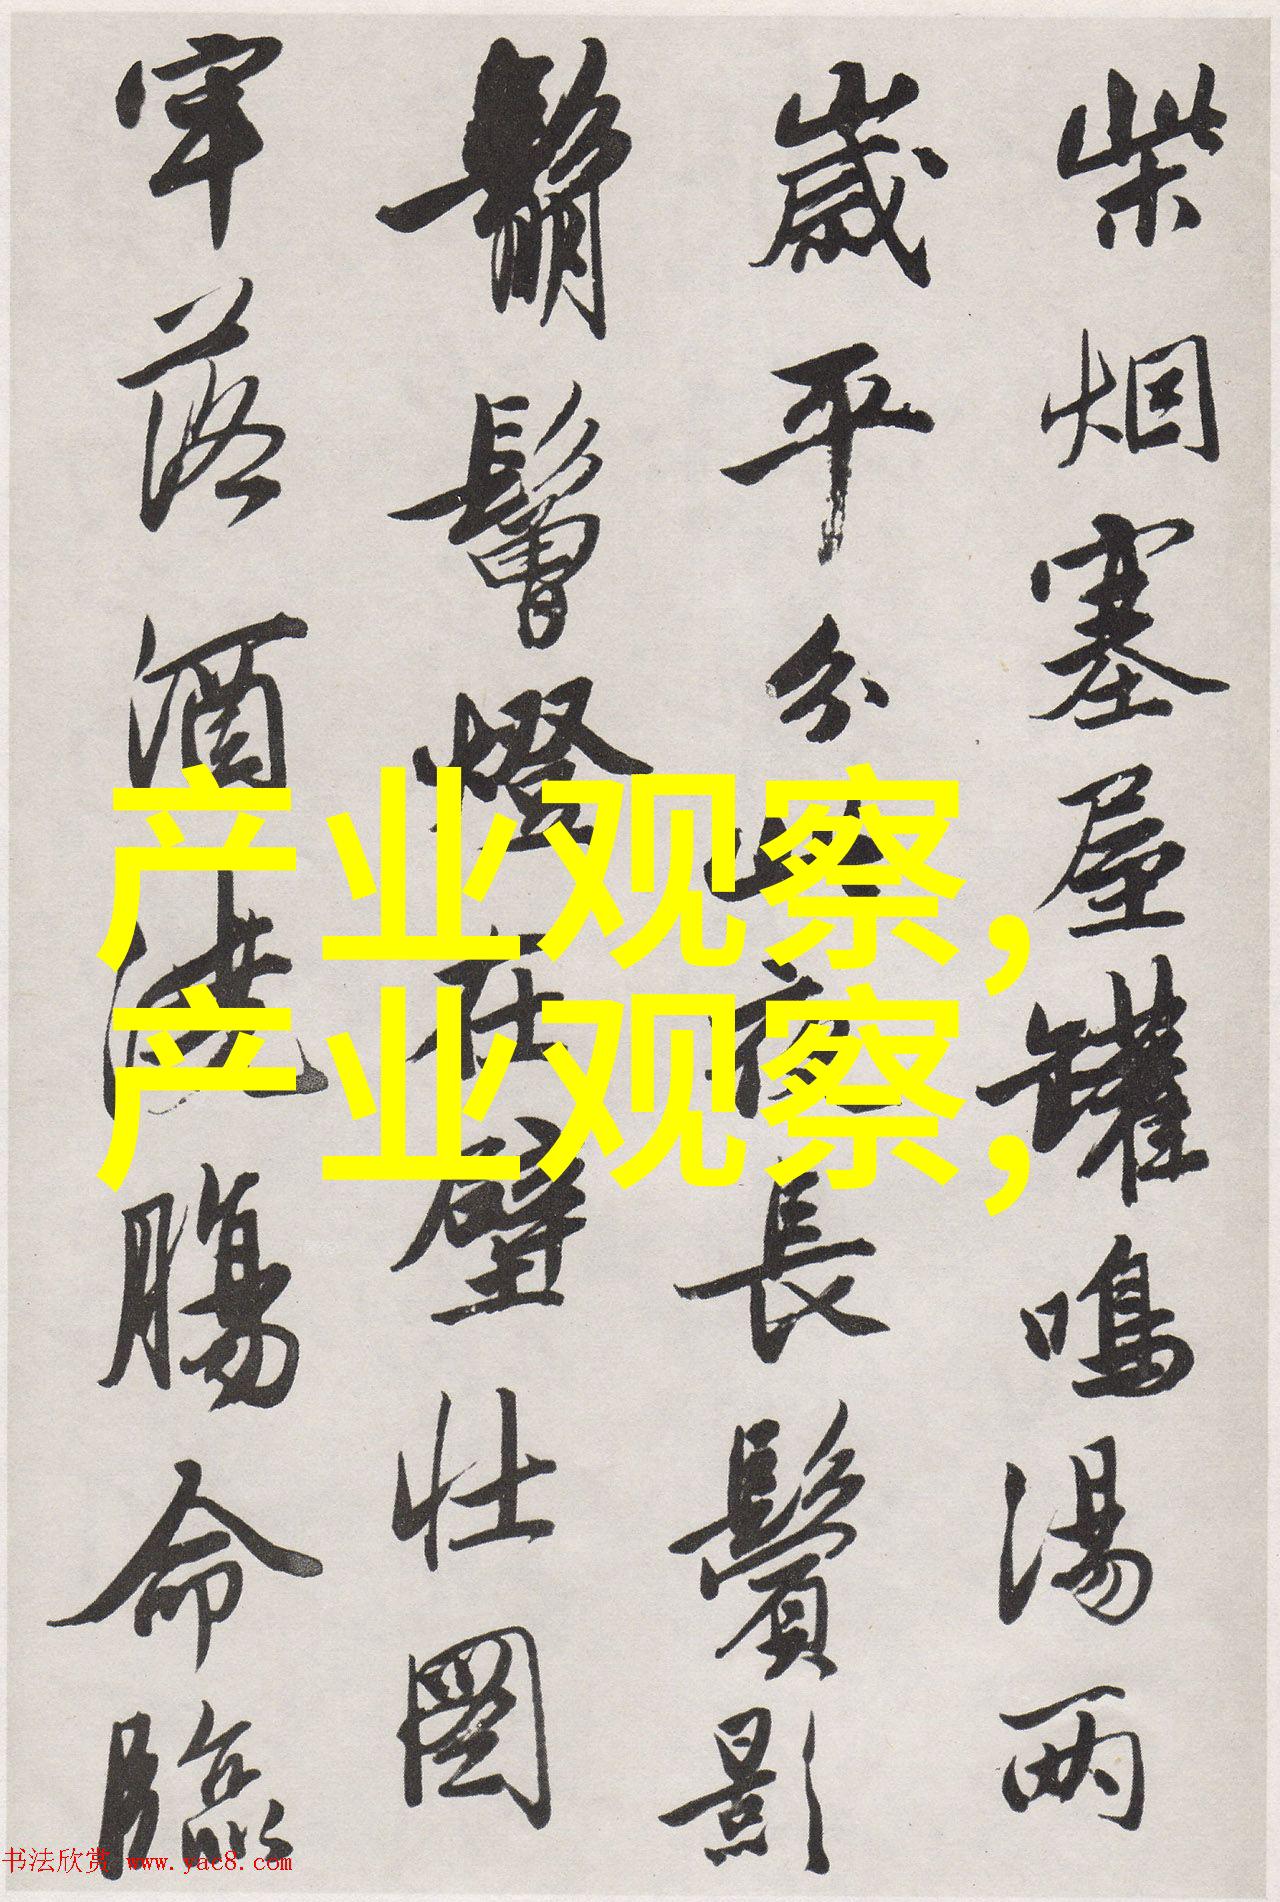 柴烟塞屋罐鳴湯兩
歲平分此夜長鬢影
鬅鬙燈在壁壮圖
牢落酒澆腸命臨
产业观察,
产业观察,
书法欣赏 www.yac8.com